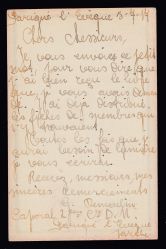 Savigné l'Evêque 3-9-17
Chers Messieurs,
Je vous envoie ce petit
mot, pour vous dire que
j'ai bien reçu le
que je vous avais
J'ai déjà distribué
les fiches de membres qui
s'y trouvaient.
Toutes les fois que j'
aurai besoin de
vous écrirai
Recevez, messieurs mes
sincères remerciements
Caporal 2me C. D. M.
Savigné l'Evêque
Sarthe